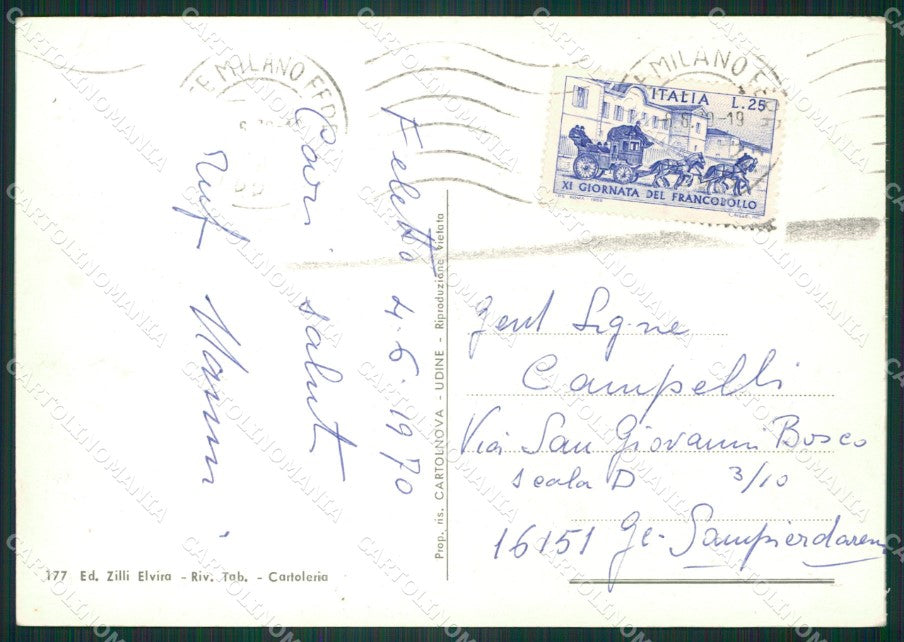 Feletto 4.6.1970
Cari salut
ITALIA L.25
XI GIORNATA DEL FRANCOBOLLO
MILANO
MILANO
Gent Sig.ne
Campelli
Via San Giovanni Bosco
scala D 3/10
16151 Ge-Sampierdarena
Prop. ris. CARTOLNOVA - UDINE - Riproduzione vietata
177 Ed. Zilli Elvira - Riv. Tab. - Cartoleria
CARTOLINOMANIA